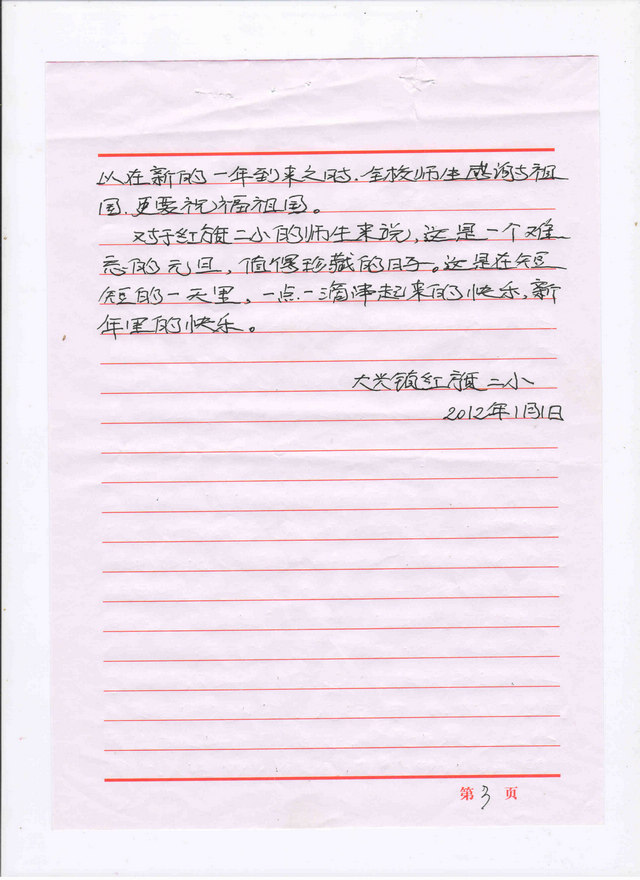 以在新的一年到来之时.全校师生感谢祖
国.更要祝福祖国。
对于红旗二小的师生来说,这是一个难
忘的元旦,值得珍藏的日子。这是在短
短的一天里,一点一滴串起来的快乐,新
年里的快乐。
大兴镇红旗二小
2012年1月1日
第3页